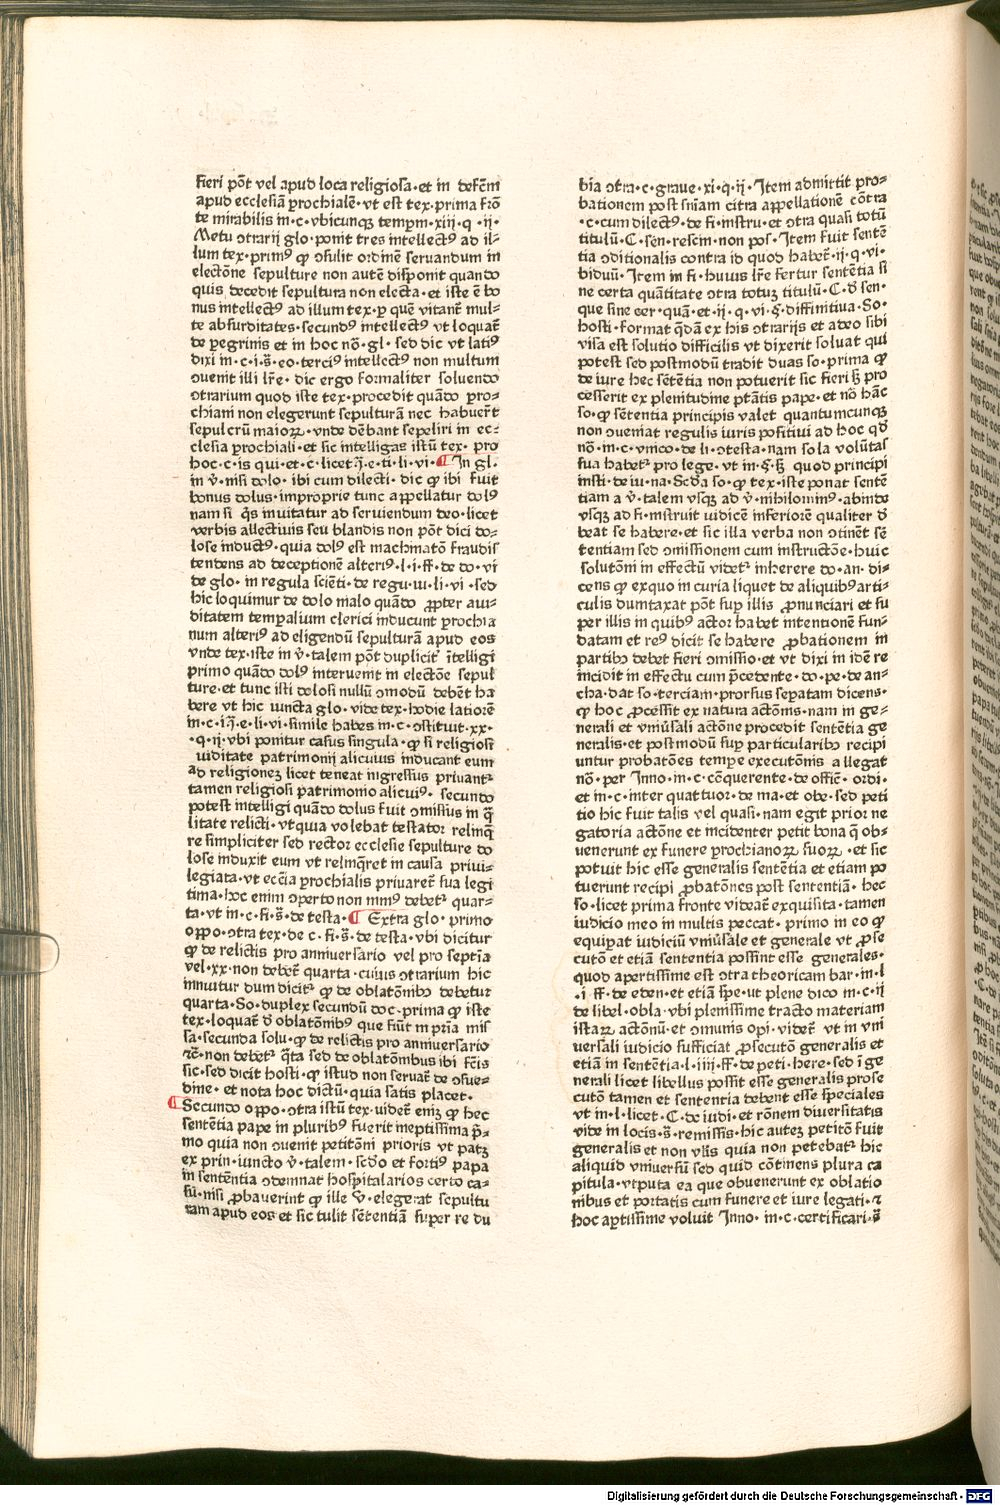 fieri põt vel apud loca religiosa·et in defẽm
apud ecclesiã ꝓrochialẽ·vt est tex·prima frõ
te mirabilis in·c·vbicunqꝫ tempꝝm·xiij·q·ij·
Metu ɔtrarij glo·ponit tres intellectꝰ ad il⸗
lum tex·primꝰ ꝙ ɔsulit ordinẽ seruandum in
electõne sepulture non autẽ disponit quando
quis decedit sepultura non electa·et iste ẽ bo
nus intellectꝰ ad illum tex·ꝑ quẽ vitant᷑ mul⸗
te absurditates·secundꝰ intellectꝰ vt loquat᷑
de ꝑegrinis et in hoc nõ·gl·sed dic vt latiꝰ
dixi in·c·i·s̃·eo·terciꝰ intellectꝰ non multum
ɔuenit illi lr̃e·dic ergo formaliter soluendo
ɔtrarium quod iste tex·procedit quãdo pro⸗
chiani non elegerunt sepulturã nec habuer̃t
sepulcrũ maioꝝ·vnde dẽbant sepeliri in ec⸗
clesia ꝓrochiali·et sic intelligas istũ tex·pro
hoc·c·is qui·et·c·licet·j̃·e·ti·li·vi·¶ In gl·
in v̾·nisi dolo·ibi cum dilecti·dic ꝙ ibi fuit
bonus dolus·improprie tunc appellatur dolꝰ
nam si q̃s inuitatur ad seruiendum deo·licet
verbis allectiuis seu blandis non põt dici do⸗
lose inductꝰ·quia dolꝰ est machinatõ fraudis
tendens ad deceptionẽ alteriꝰ·l·i·ff·de do·vi
de glo·in regula sciẽti·de regu·iu·li·vi·sed
hic loquimur de dolo malo quãdo ꝓpter aui⸗
ditatem temꝑalium clerici inducunt ꝑrochia
num alteriꝰ ad eligendũ sepulturã apud eos
vnde tex·iste in v̾·talem põt duplicit᷑ ĩtelligi
primo quãdo dolꝰ interuenit in electõe sepul
ture·et tunc isti dolosi nullũ ɔmodũ debẽt ha
bere vt hic iuncta glo·vide tex·hodie latiorẽ
in·c·i·j̃·e·li·vi·simile habes in·c·ɔstituit·xx·
·q·ij·vbi ponitur casus singula·ꝙ si religiosi
uiditate patrimonij alicuius inducant eum
ad religioneꝫ licet teneat ingressus priuant᷑
tamen religiosi patrimonio alicuiꝰ·secundo
potest intelligi quãdo dolus fuit ɔmissus in q̃
litate relicti·vt quia volebat testator relinq̃
re simpliciter sed rector ecclesie sepulture do
lose induxit eum vt relinq̃ret in causa priui⸗
legiata·vt ecc̃ia ꝓrochialis priuaret᷑ sua legi
tima·hoc enim aperto non minꝰ debet᷑ quar⸗
ta·vt in·c·fi·s̃·de testa·¶ Extra glo·primo
oppo·ɔtra tex·de c·fi·s̃·de testa·vbi dicitur
ꝙ de relictis pro anniuersario vel pro septĩa
vel·xx·non debet᷑ quarta·cuius ɔtrarium hic
innuitur dum dicit᷑ ꝙ de oblatõnibꝰ debetur
quarta·So·duplex secundũ doc·prima ꝙ iste
tex·loquat᷑ d̾ oblatõnibꝰ que fiũt in pria᷑ mis
sa·secunda solu·ꝙ de relictis pro anniuersario
⁊c̃·non debet᷑ q̃ta sed de oblatõnibus ibi fc̃is
sic·sed dicit hosti·ꝙ istud non seruat᷑ de ɔsue⸗
dine·et nota hoc dictũ·quia satis placet·
¶ Secundo oppo·ɔtra istũ tex·videt᷑ enim ꝙ hec
sentẽtia pape in pluribꝰ fuerit ineptissima p̃⸗
mo quia non ɔuenit petitõni prioris vt patꝫ
ex prin·iuncto v̾·talem·sc̃do et fortiꝰ papa
in sentẽtia ɔdemnat hospitalarios certo ca⸗
su·nisi ꝓbauerint ꝙ ille v̾·elegerat sepultu
ram apud eos et sic tulit sẽtentiã super re du
bia ɔtra·c·graue·xi·q·ij·Item admittit pro⸗
bationem post sniam citra appellationẽ cõtra
·c·cum dilectꝰ·de fi·instru·et ɔtra quasi totũ
titulũ·C·sen·rescin·non pos·Item fuit sentẽ
tia ɔditionalis contra id quod habet᷑·ij·q·vi·
biduũ·Item in fi·huius lr̃e fertur sentẽtia si
ne certa quãtitate ɔtra totuꝫ titulũ·C·d̾ sen·
que sine cer·quã·et·ij·q·vi·§·diffinitiua·So·
hosti·format q̃dã ex his ɔtrarijs et adeo sibi
visa est solutio difficilis vt dixerit soluat qui
potest sed postmodũ tradit duas so·prima ꝙ
de iure hec sẽtẽtia non potuerit sic fieri sꝫ pro
cesserit ex plenitudine ptãtis pape·et nõ hãc
so·ꝙ sẽtentia principis valet quantumcunqꝫ
non ɔueniat regulis iuris positiui ad hoc qd̾
nõ·in·c·vnico·de li·ɔtesta·nam sola volũtas
sua habet᷑ pro lege·vt in·§·sꝫ quod principi
insti·de iu·na·Sc̃da so·ꝙ tex·iste ponat sentẽ
tiam a v̾·talem vsqꝫ ad v̾·nihilominꝰ·abinde
vsqꝫ ad fi·instruit iudicẽ inferiorẽ qualiter d̾
beat se habere·et sic illa verba non ɔtinẽt sẽ
tentiam sed ɔmissionem cum instructõe·huic
solutõni in effectũ videt᷑ inherere do·an·di⸗
cens ꝙ exquo in curia liquet de aliquibꝰ arti⸗
culis dumtaxat põt suꝑ illis ꝓnunciari et su
per illis in quibꝰ actor habet intentionẽ fun⸗
datam et reꝰ dicit se habere ꝓbationem in
partibꝰ debet fieri ɔmissio·et vt dixi in idẽ re
incidit in effectu cum p̃cedente·do·pe·de an⸗
cha·dat so·terciam·prorsus seꝑatam dicens·
ꝙ hoc ꝓcessit ex natura actõnis·nam in ge⸗
nerali et vniũsali actõne procedit sentẽtia ge
neralis·et postmodũ suꝑ particularibꝰ recipi
untur probatões tempe executõnis allegat
nõ·per Inno·in·c·cõquerente·de offic̃·ordi·
et in·c·inter quattuor·de ma·et obe·sed peti
tio hic fuit talis vel quasi·nam egit prior ne
gatoria actõne et incidenter petit bona q̃ ob⸗
uenerunt ex funere ꝓrochianoꝝ suoꝝ·et sic
potuit hic esse generalis sentẽtia et etiam po
tuerunt recipi ꝓbatõnes post sententiã·hec
so·licet prima fronte videat᷑ exquisita·tamen
iudicio meo in multis peccat·primo in eo ꝙ
equiꝑat iudiciũ vniũsale et generale vt ꝓse
cutõ et etiã sententia possint esse generales·
quod apertissime est ɔtra theoricam bar·in·l
·i·ff·de eden·et etiã spe·ut plene dico in·c·ij
de libel·obla·vbi plenissime tracto materiam
istaꝝ actõnũ·et ɔmunis opi·videt᷑ vt in vni
uersali iudicio sufficiat ꝓsecutõ generalis et
etiã in sentẽtia·l·iiij·ff·de peti·here·sed ĩ ge
nerali licet libellus possit esse generalis prose
cutõ tamen et sententia debent esse speciales
vt in·l·licet·C·de iudi·et rõnem diuersitatis
vide in locis·s̃·remissis·hic auteꝫ petitõ fuit
generalis et non vl̃is quia non petebat᷑ hic
aliquid vniuersũ sed quid cõtinens plura ca
pitula·vtputa ea que obuenerunt ex oblatio
nibus et portatis cum funere et iure legati·⁊
hoc aꝑtissime voluit Inno·in·c·certificari·s̃
Digitalisierung gefördert durch die Deutsche Forschungsgemeinschaft - DFG